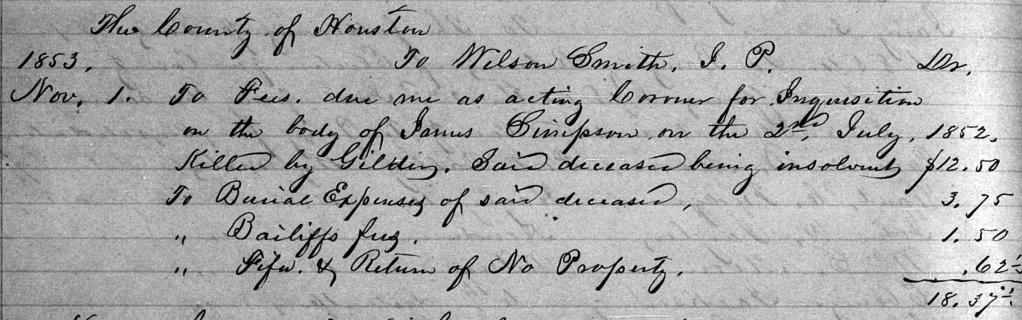 The County of Houston
1853. To Wilson Smith, J. P. Dr.
Nov. 1. To Fees. due me as acting Coroner for Inquisition
on the body of James Simpson on the 2nd, July, 1852,
Killed by Gilding. Said deceased being insolvent $12.50
To Burial Expenses of said deceased, 3.75
" Bailiffs fees. 1.50
" Fifa. & Return of No Property. .62½
18.37½